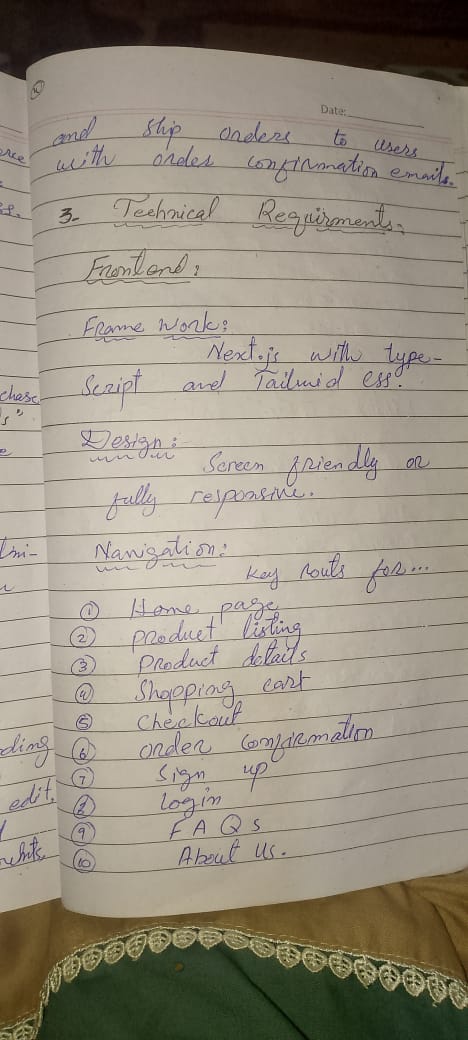 Date:
and ship orders to users
with order confirmation emails.
3- Technical Requirments.
Frontend:
Frame Work:
Next.js with type-
Script and Tailwid css.
Design:
Screen friendly or
fully responsive.
Navigation:
Key routs for...
① Home page
② product listing
③ Product details
④ Shopping cart
⑤ Checkout
⑥ order confirmation
⑦ Sign up
⑧ login
⑨ FAQs
⑩ About us.
chase
s"
ding
edit,